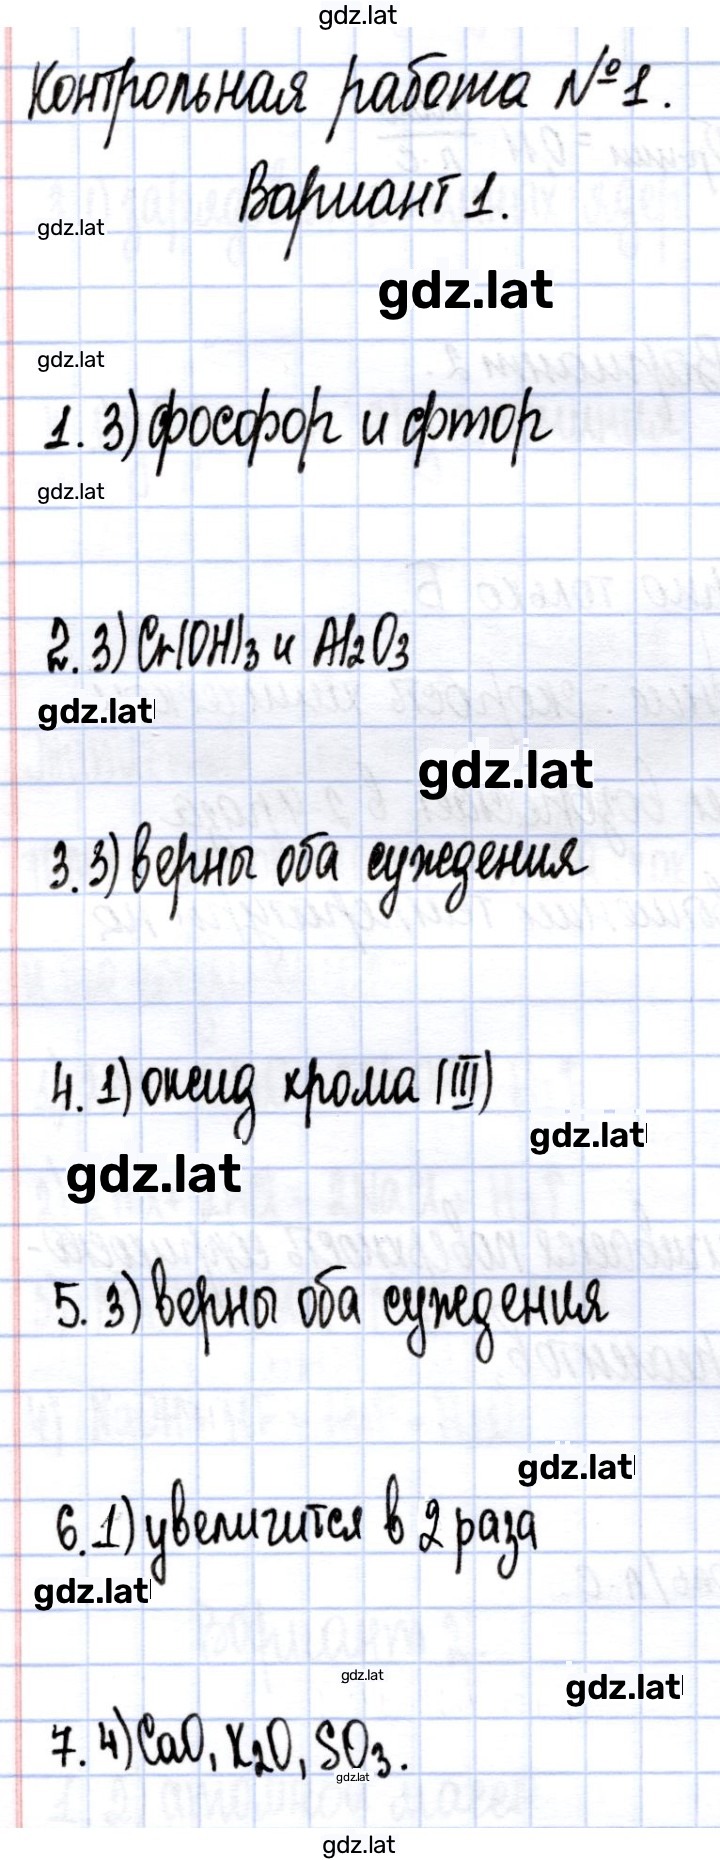 gdz.lat
Контрольная работа №1.
Вариант 1.
gdz.lat
gdz.lat
gdz.lat
1. 3) фосфор и фтор
gdz.lat
2. 3) Cr(OH)3 и Al2O3
gdz.lat
gdz.lat
3. 3) верны оба суждения
4. 1) оксид хрома (III)
gdz.lat
gdz.lat
5. 3) верны оба суждения
gdz.lat
6. 1) увеличится в 2 раза
gdz.lat
gdz.lat
gdz.lat
7. 4) CaO, K2O, SO3.
gdz.lat
gdz.lat